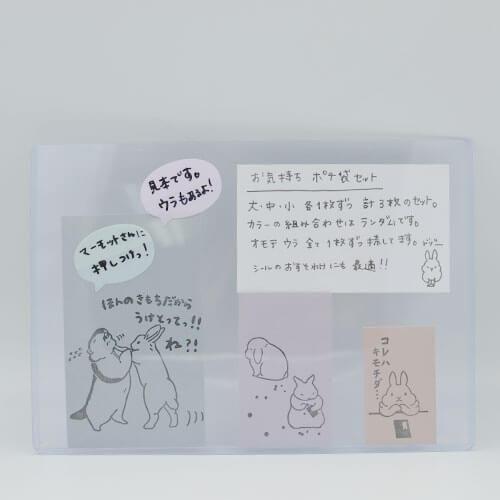 見本です。
ウラもあるよ!
マーモットさんに
押しつけっ!
ほんのきもちだから
うけとってっ!!
ね?!
お気持ち ポチ袋セット
大・中・小 各1枚ずつ 計3枚のセット。
カラーの組み合わせは ランダムです。
オモテ ウラ 全て 1枚ずつ 捺してます。
シールのおすそわけにも 最適!!
コレハ
キモチダ…